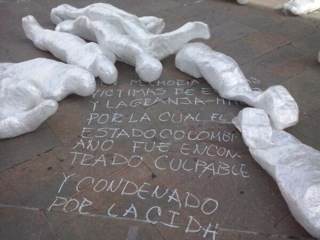 MEMORIA
VICTIMAS DE E
Y LA GRANJA-IT
POR LA CUAL EL
ESTADO COLOMBI
ANO FUE ENCON
TRADO CULPABLE
Y CONDENADO
POR LA CIDH